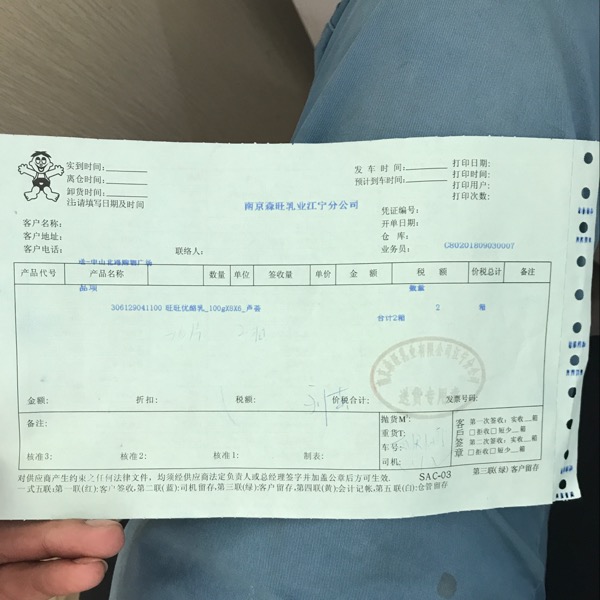 实到时间:
离仓时间:
卸货时间:
注:请填写日期及时间
发车时间:
预计到车时间:
打印日期:
打印时间:
打印用户:
打印次数:
南京淼旺乳业江宁分公司
客户名称:
客户地址:
客户电话:
联络人:
凭证编号:
开单日期:
仓库:
业务员:
G80201809030007
产品代号 产品名称 数量 单位 签收量 单价 金额 税额 价税总计 备注
品项 数量
306129041100 旺旺优酪乳_100gX5X6_芦荟 2 箱
合计2箱
金额: 折扣: 税额: 价税合计: 发票号码:
备注:
核准3: 核准2: 核准1: 制表:
抛货M³:
重货T:
车号:
司机:
客户签章
第一次签收: 实收__箱
□拒收□短少__箱
第二次签收: 实收__箱
□拒收□短少__箱
对供应商产生约束之任何法律文件,均须经供应商法定负责人或总经理签字并加盖公章后方可生效.
SAC-03
第三联(绿)客户留存
一式五联:第一联(红):客户签收,第二联(蓝):司机留存,第三联(绿):客户留存,第四联(黄):会计记帐,第五联(白):仓管留存